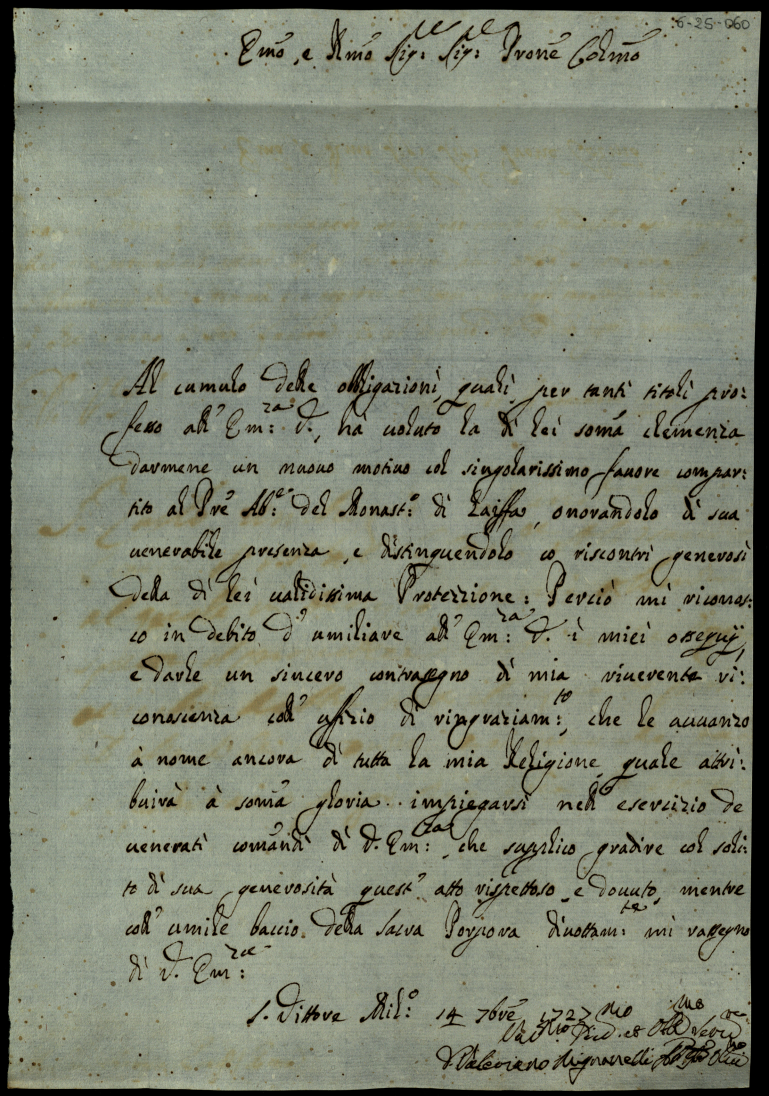 6-25-060
Emo, e Rmo Sig:re Sig:re Prone Colmo
Al cumulo delle obbligazioni, quali per tanti titoli pro:
fesso all' Em:za V., ha voluto la di lei soma clemenza
darmene un nuovo motivo col singolarissimo favore compar:
tito al Pre Ab:e del Monast:o di, onorandolo di sua
venerabile presenza, e distinguendolo co riscontri generosi
della di lei validissima Protezzione: Perciò mi riconos:
co in debito d' umiliare all' Em:za V. i miei ossequij,
e darle un sincero contrasegno di mia riverente ri:
conoscenza coll' ufizio di ringraziam:to, che le avvanzo
à nome ancora di tutta la mia Religione, quale attri:
buirà à soma gloria impiegarsi nell' esercizio de
venerati comandi di V. Em:za, che supplico gradire col soli:
to di sua generosità quest' atto rispettoso, e dovuto, mentre
coll' umile baccio della Sacra Porpora divottam:te mi rassegno
di V. Em:za
S. Vittore Mil:o 14 7bre 1727
D Valeriano Mignanelli